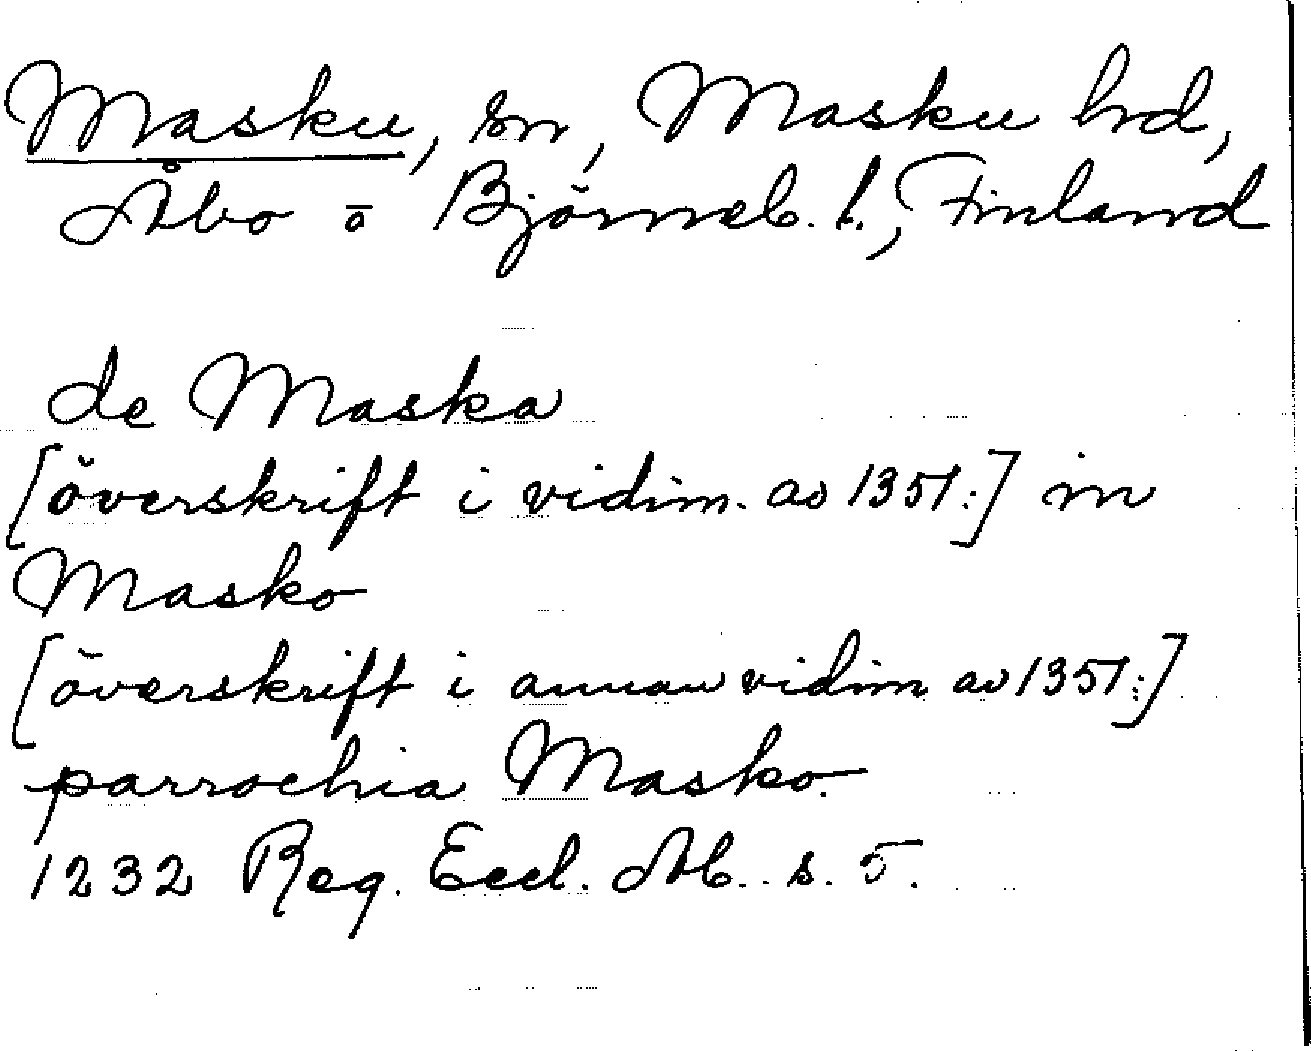 Masku, sn, Masku hrd,
Åbo o Björneb. l., Finland
de Maska
[överskrift i vidim. av 1351:] in
Masko
[överskrift i annan vidim av 1351:]
parrochia Masko.
1232 Reg. Eccl. Ab. s. 5.